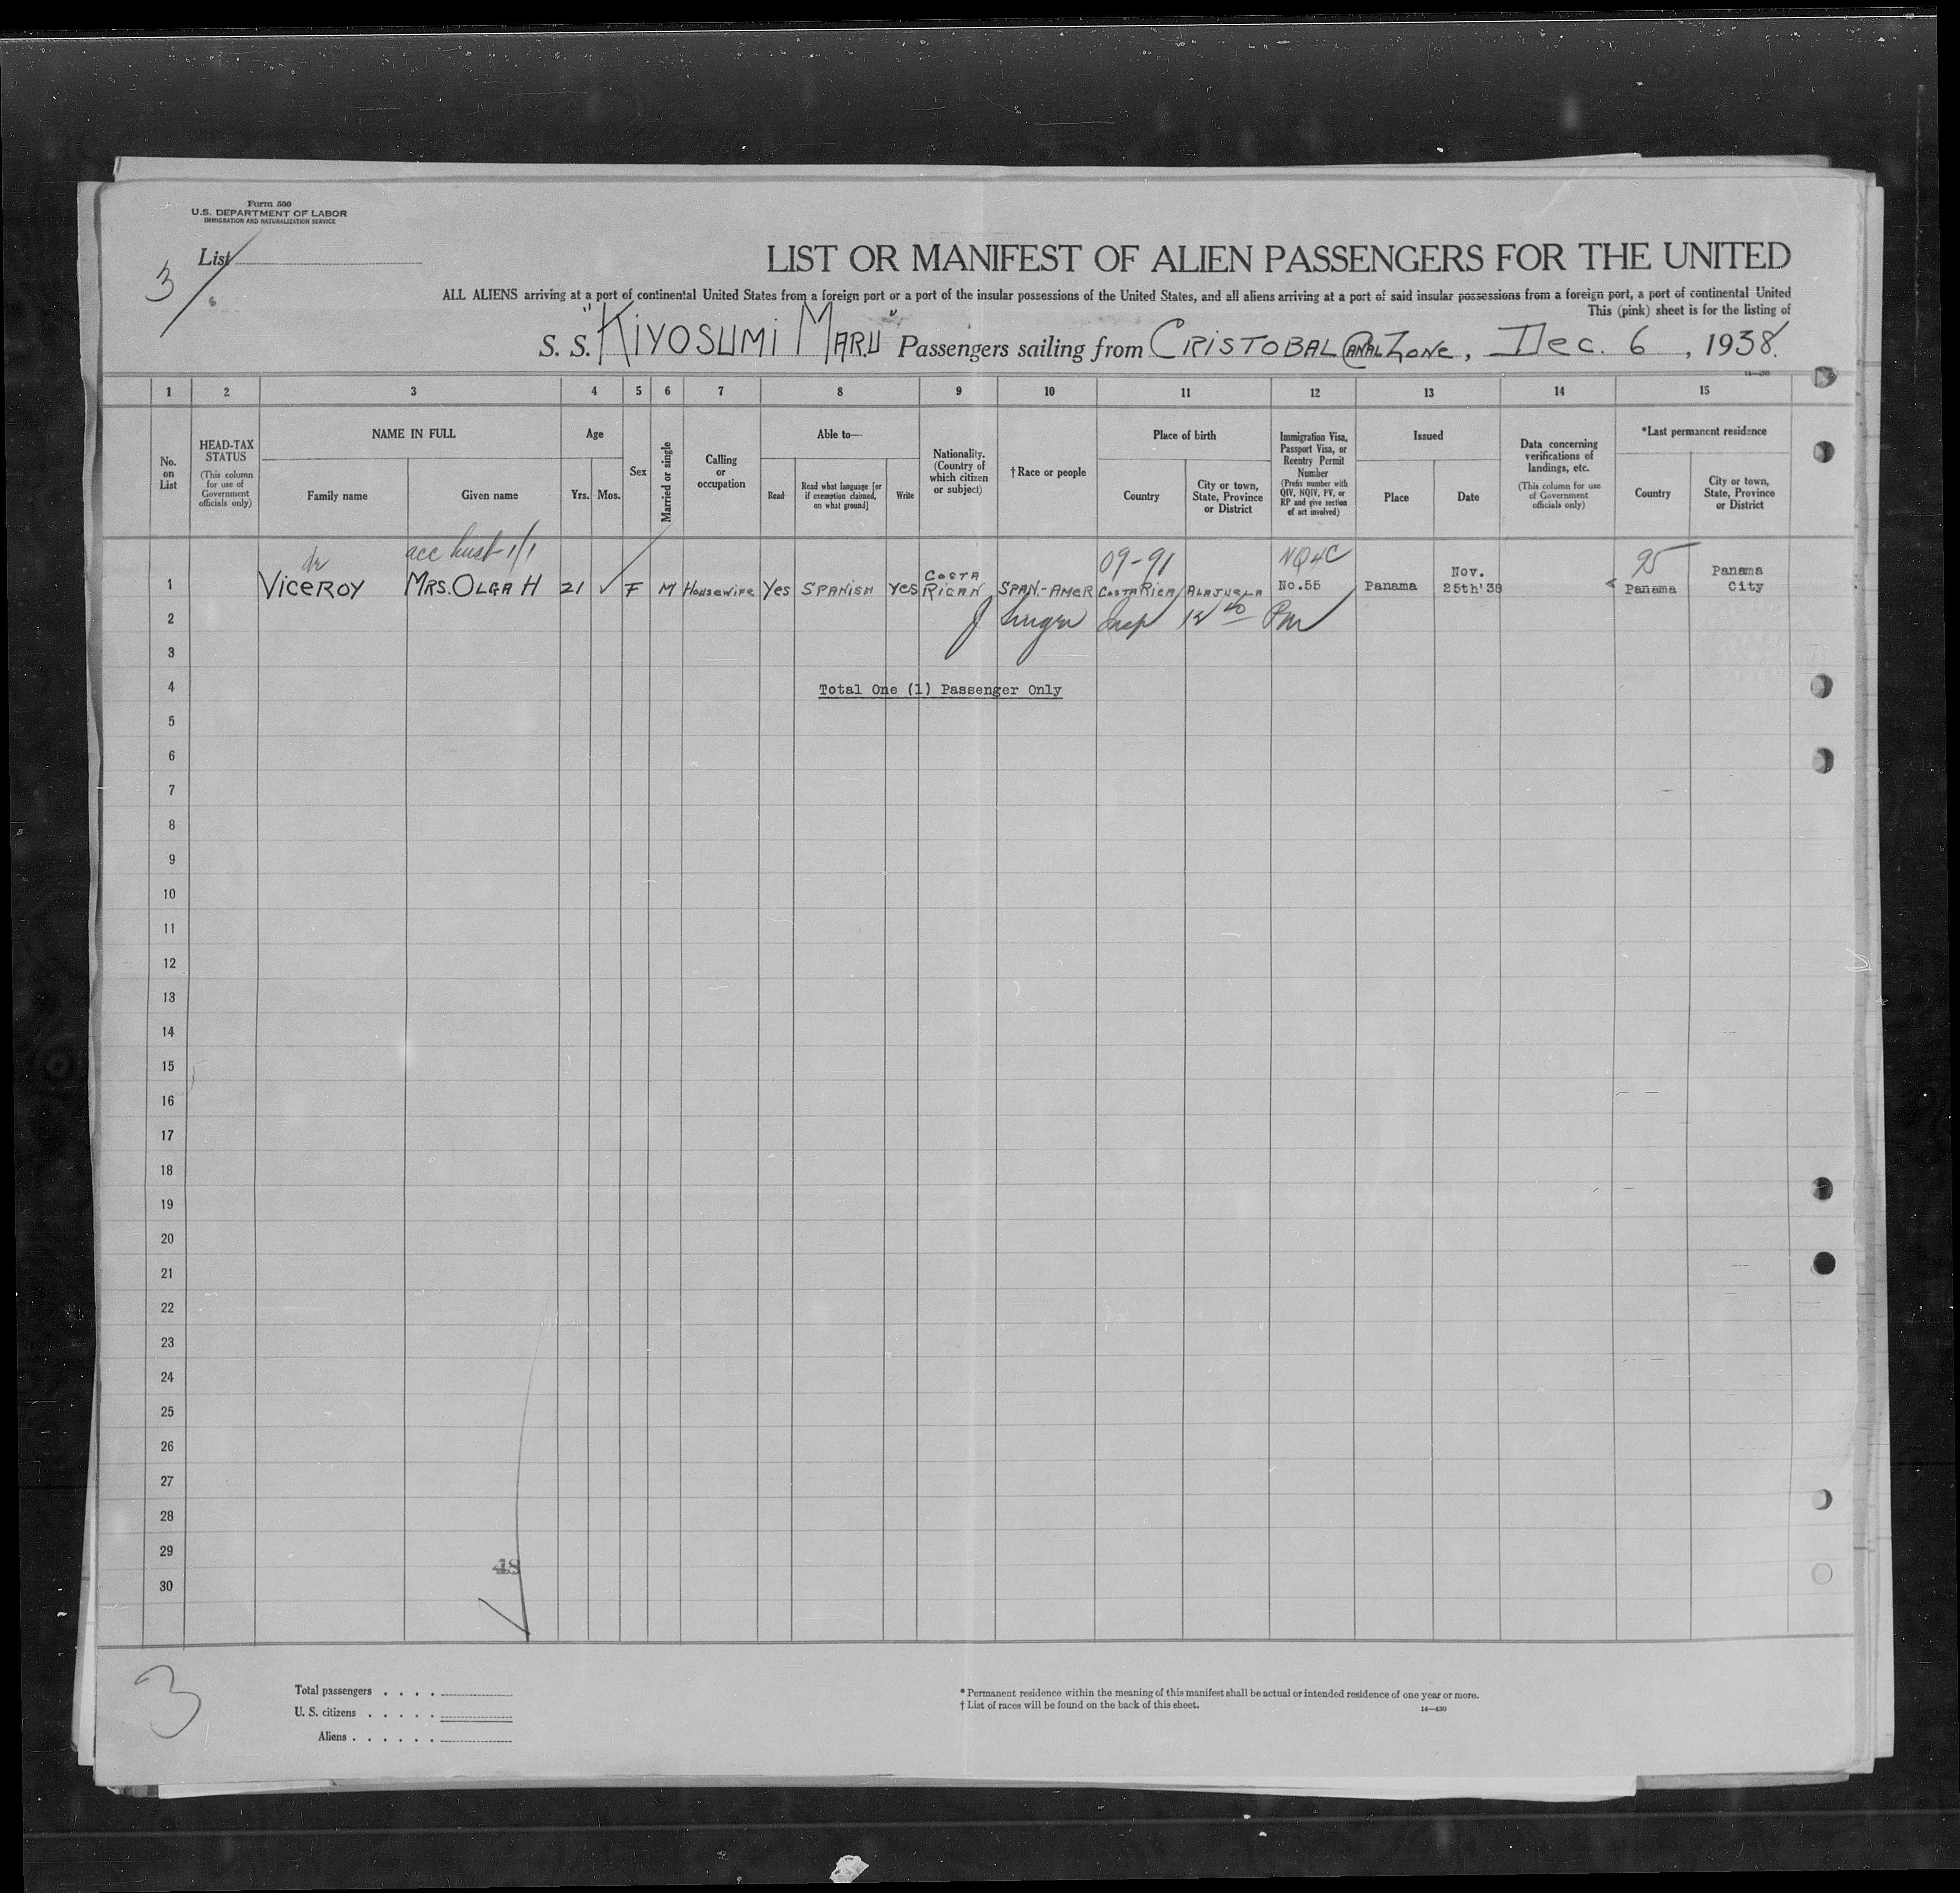 Form 500
U.S. DEPARTMENT OF LABOR
IMMIGRATION AND NATURALIZATION SERVICE
List
3
LIST OR MANIFEST OF ALIEN PASSENGERS FOR THE UNITED
ALL ALIENS arriving at a port of continental United States from a foreign port or a port of the insular possessions of the United States, and all aliens arriving at a port of said insular possessions from a foreign port, a port of continental United
This (pink) sheet is for the listing of
S. S. "KIYOSUMI MARU" Passengers sailing from CRISTOBAL CANAL ZONE, Dec. 6, 1938.
14-430
1 2 3 4 5 6 7 8 9 10 11 12 13 14 15
No. on List
HEAD-TAX STATUS (This column for use of Government officials only)
NAME IN FULL
Family name
Given name
Age
Yrs.
Mos.
Sex
Married or single
Calling or occupation
Able to—
Read
Read what language [or if exemption claimed, on what ground]
Write
Nationality. (Country of which citizen or subject)
† Race or people
Place of birth
Country
City or town, State, Province or District
Immigration Visa, Passport Visa, or Reentry Permit Number (Prefix number with QIV, NQIV, PV, or RP and give section of act involved)
Issued
Place
Date
Data concerning verifications of landings, etc. (This column for use of Government officials only)
*Last permanent residence
Country
City or town, State, Province or District
de acc husb 1/1 09-91 NQ4C 95
1 VICEROY MRS. OLGA H 21 ✓ F M Housewife Yes SPANISH Yes COSTA RICAN SPAN.-AMER COSTA RICA ALAJUELA No.55 Panama Nov. 25th'38 Panama Panama City
2 Insp 12 40 Pm
3
4 Total One (1) Passenger Only
5
6
7
8
9
10
11
12
13
14
15
16
17
18
19
20
21
22
23
24
25
26
27
28
29
48
30
3
Total passengers . . . .
U. S. citizens . . . . .
Aliens . . . . . .
* Permanent residence within the meaning of this manifest shall be actual or intended residence of one year or more.
† List of races will be found on the back of this sheet.
14—430